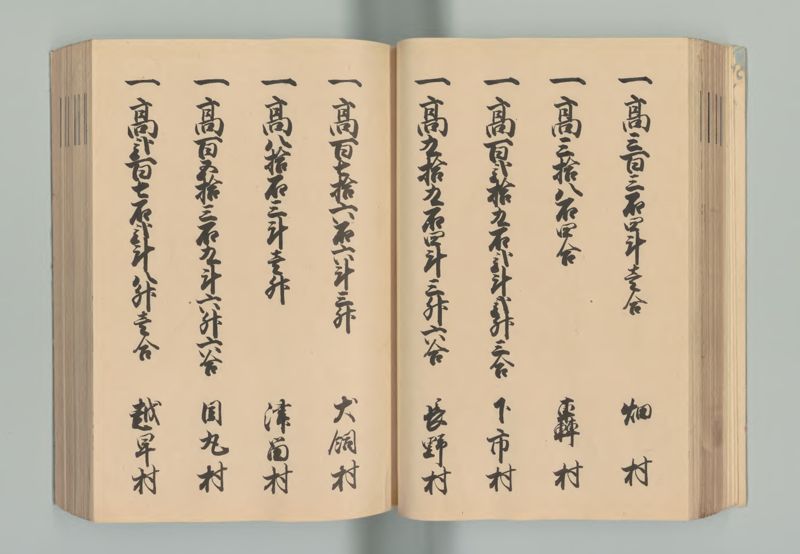 一高三百三石四斗壱合 畑村
一高三拾八石四合 轟村
一高百弐拾九石弐斗弐升三合 下市村
一高九拾九石四斗三升六合 長野村
一高百七拾六石六斗三升 犬飼村
一高八拾石三斗壱升 津留村
一高百五拾三石九斗六升六合 田丸村
一高弐百七石弐斗八升壱合 越早村